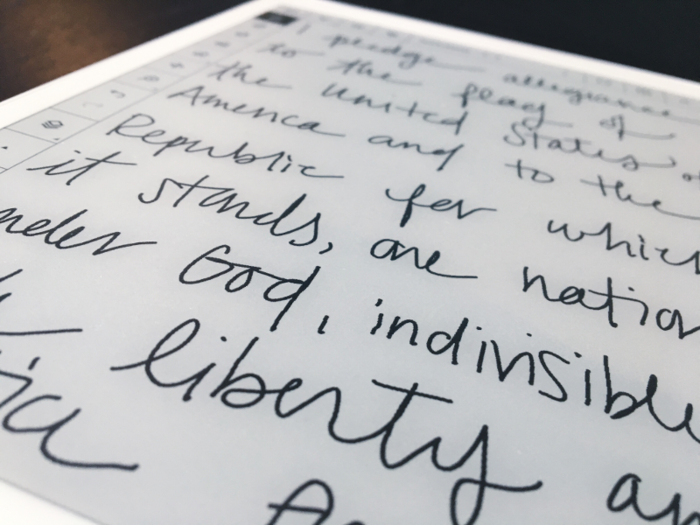 I pledge allegiance
to the flag of
the United States of
America and to the
Republic for which
it stands, one nation
under God, indivisible
liberty